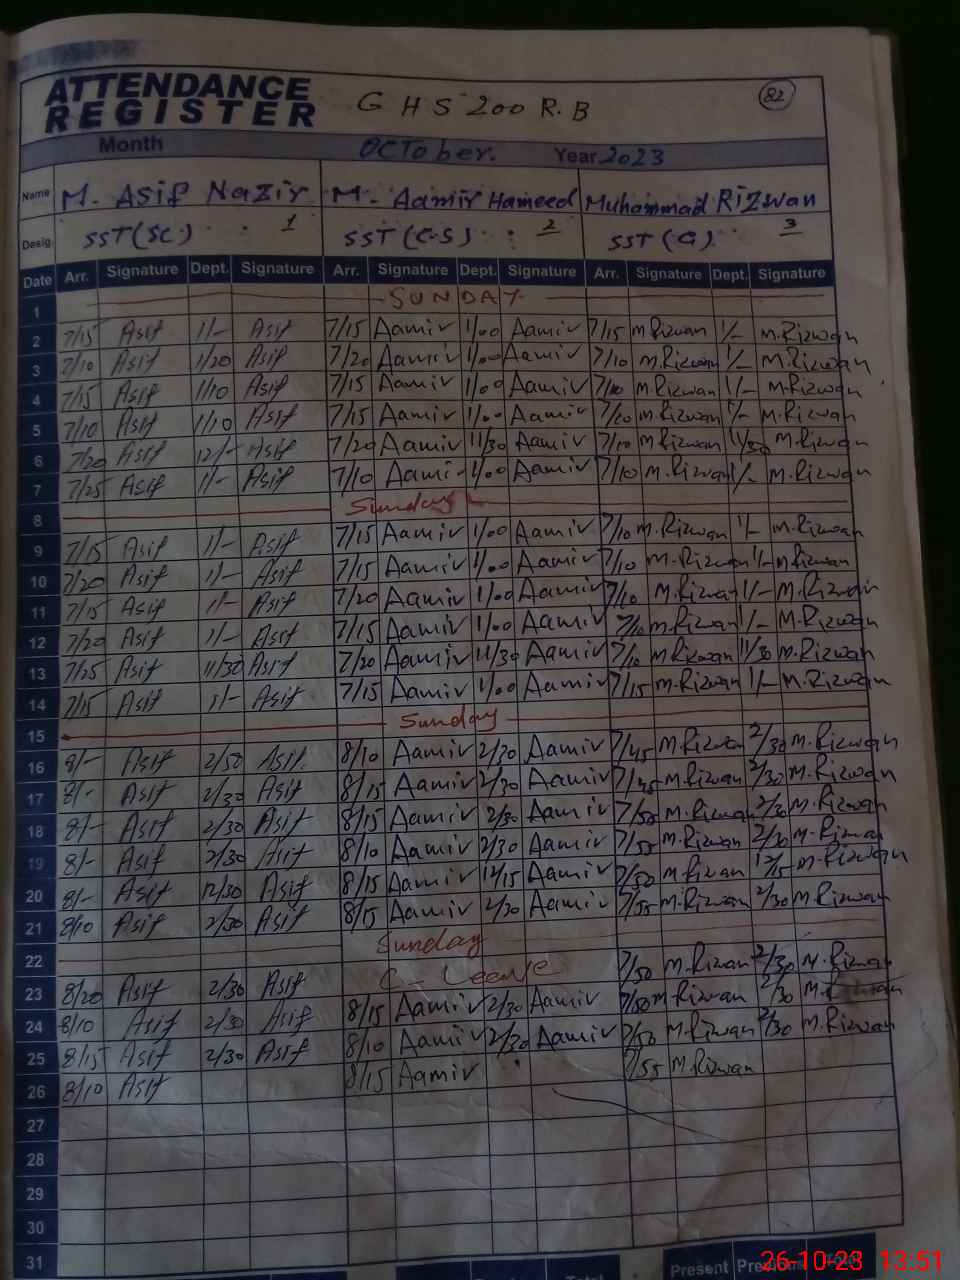 ATTENDANCE
REGISTER
GHS 200 R.B
82
Month October. Year 2023
Name M. Asif Nazir M. Aamir Hameed Muhammad Rizwan
Desig. SST (SC) 1 SST (C-S) 2 SST (G) 3
Date Arr. Signature Dept. Signature Arr. Signature Dept. Signature Arr. Signature Dept. Signature
1 SUNDAY
2 7/15 Asif 1/- Asif 7/15 Aamir 1/00 Aamir 7/15 M.Rizwan 1/- M.Rizwan
3 7/10 Asif 1/20 Asif 7/20 Aamir 1/00 Aamir 7/10 M.Rizwan 1/- M.Rizwan
4 7/15 Asif 1/10 Asif 7/15 Aamir 1/00 Aamir 7/10 M.Rizwan 1/- M.Rizwan
5 7/10 Asif 1/10 Asif 7/15 Aamir 1/00 Aamir 7/10 M.Rizwan 1/- M.Rizwan
6 7/20 Asif 12/- Asif 7/20 Aamir 11/30 Aamir 7/10 M.Rizwan 11/30 M.Rizwan
7 7/25 Asif 1/- Asif 7/10 Aamir 1/00 Aamir 7/10 M.Rizwan 1/- M.Rizwan
8 Sunday
9 7/15 Asif 1/- Asif 7/15 Aamir 1/00 Aamir 7/10 M.Rizwan 1/- M.Rizwan
10 7/20 Asif 1/- Asif 7/15 Aamir 1/00 Aamir 7/10 M.Rizwan 1/- M.Rizwan
11 7/15 Asif 1/- Asif 7/20 Aamir 1/00 Aamir 7/10 M.Rizwan 1/- M.Rizwan
12 7/20 Asif 1/- Asif 7/15 Aamir 1/00 Aamir 7/10 M.Rizwan 1/- M.Rizwan
13 7/25 Asif 11/30 Asif 7/20 Aamir 11/30 Aamir 7/10 M.Rizwan 11/30 M.Rizwan
14 7/15 Asif 1/- Asif 7/15 Aamir 1/00 Aamir 7/15 M.Rizwan 1/- M.Rizwan
15 Sunday
16 8/- Asif 2/30 Asif 8/10 Aamir 2/30 Aamir 7/45 M.Rizwan 2/30 M.Rizwan
17 8/- Asif 2/30 Asif 8/15 Aamir 2/30 Aamir 7/45 M.Rizwan 2/30 M.Rizwan
18 8/- Asif 2/30 Asif 8/15 Aamir 2/30 Aamir 7/50 M.Rizwan 2/30 M.Rizwan
19 8/- Asif 2/30 Asif 8/10 Aamir 2/30 Aamir 7/55 M.Rizwan 2/30 M.Rizwan
20 8/- Asif 12/30 Asif 8/15 Aamir 12/15 Aamir 7/50 M.Rizwan 12/15 M.Rizwan
21 8/10 Asif 2/30 Asif 8/15 Aamir 2/30 Aamir 7/55 M.Rizwan 2/30 M.Rizwan
22 Sunday
23 8/20 Asif 2/30 Asif C-Leave 7/50 M.Rizwan 2/30 M.Rizwan
24 8/10 Asif 2/30 Asif 8/15 Aamir 2/30 Aamir 7/50 M.Rizwan 2/30
25 8/15 Asif 2/30 Asif 8/10 Aamir 2/30 Aamir 7/50 M.Rizwan 2/30 M.Rizwan
26 8/10 Asif 8/15 Aamir 7/55 M.Rizwan
27
28
29
30
31
Total Present Total
26-10-23 13:51